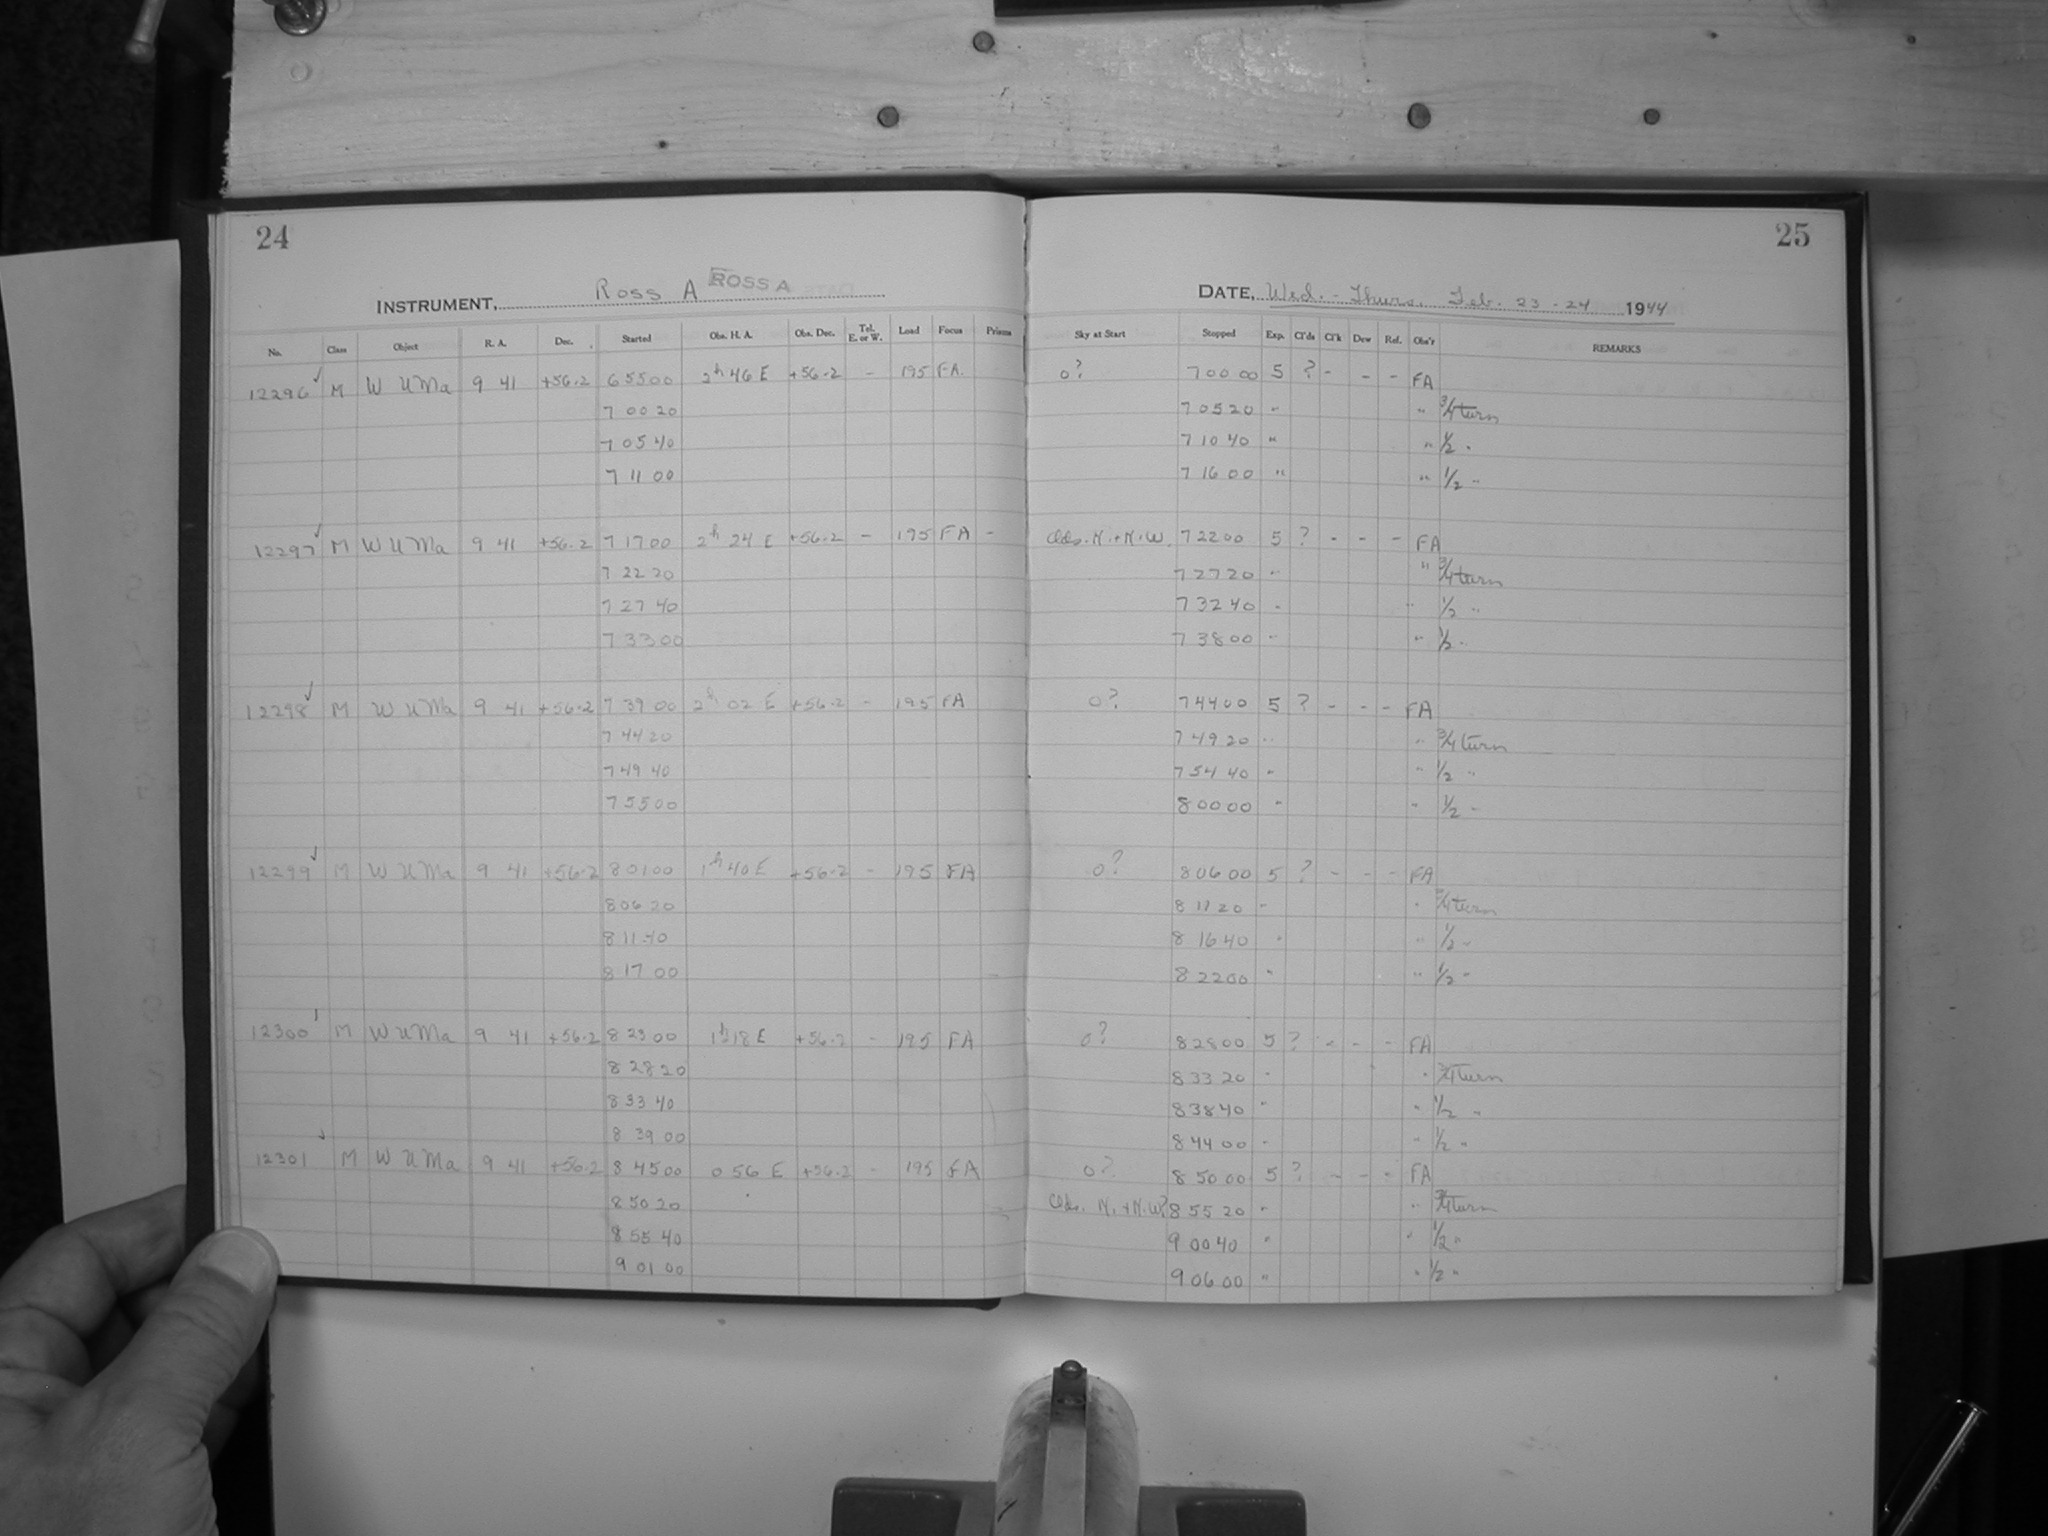 24
INSTRUMENT, Ross A ROSS A
No. Class Object R. A. Dec. Started Obs. H. A. Obs. Dec. Tel. E. or W. Load Focus Prisms
12296 M W UMa 9 41 +56.2 6 55 00 2h 46 E +56.2 - 195 FA.
7 00 20
7 05 40
7 11 00
12297 M W UMa 9 41 +56.2 7 17 00 2h 24 E +56.2 - 195 FA -
7 22 20
7 27 40
7 33 00
12298 M W UMa 9 41 +56.2 7 39 00 2h 02 E +56.2 - 195 FA
7 44 20
7 49 40
7 55 00
12299 M W UMa 9 41 +56.2 8 01 00 1h 40 E +56.2 - 195 FA
8 06 20
8 11 40
8 17 00
12300 M W UMa 9 41 +56.2 8 23 00 1h 18 E +56.2 - 195 FA
8 28 20
8 33 40
8 39 00
12301 M W UMa 9 41 +56.2 8 45 00 0 56 E +56.2 - 195 FA
8 50 20
8 55 40
9 01 00
25
DATE, Wed. - Thurs. Feb. 23 - 24 1944
Sky at Start Stopped Exp. Cl'ds Cl'k Dew Ref. Obs'r REMARKS
0? 7 00 00 5 ? - - - FA
7 05 20 " " 3/4 turn
7 10 40 " " 1/2 "
7 16 00 " " 1/2 "
Clds. N. + N.W. 7 22 00 5 ? - - - FA
7 27 20 " " 3/4 turn
7 32 40 " " 1/2 "
7 38 00 " " 1/2 "
0? 7 44 00 5 ? - - - FA
7 49 20 " " 3/4 turn
7 54 40 " " 1/2 "
8 00 00 " " 1/2 "
0? 8 06 00 5 ? - - - FA
8 11 20 " " 3/4 turn
8 16 40 " " 1/2 "
8 22 00 " " 1/2 "
0? 8 28 00 5 ? - - - FA
8 33 20 " " 3/4 turn
8 38 40 " " 1/2 "
8 44 00 " " 1/2 "
0? 8 50 00 5 ? - - - FA
Clds. N. + N.W? 8 55 20 " " 3/4 turn
9 00 40 " " 1/2 "
9 06 00 " " 1/2 "